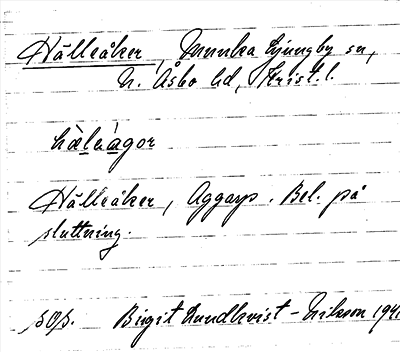 Hälleåker, Munka Ljungby sn,
N. Åsbo hd, Krist. l.
hàlạágor
Hälleåker, Aggarp. Bel. på
sluttning.
Birgit Lundkvist-Nilsson 1941